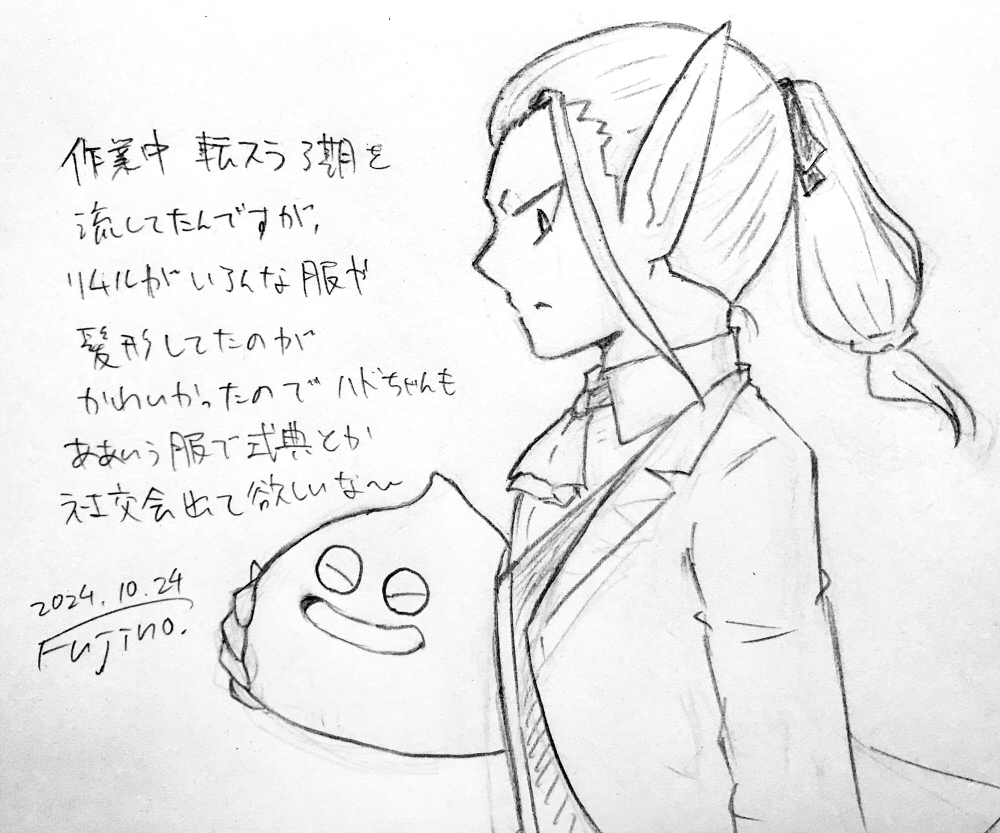 作業中 転スラ3期を
流してたんですが、
リムルがいろんな服や
髪形してたのが
かわいかったのでハドちゃんも
ああいう服で式典とか
社交会出て欲しいな〜
2024.10.24
Fujino.